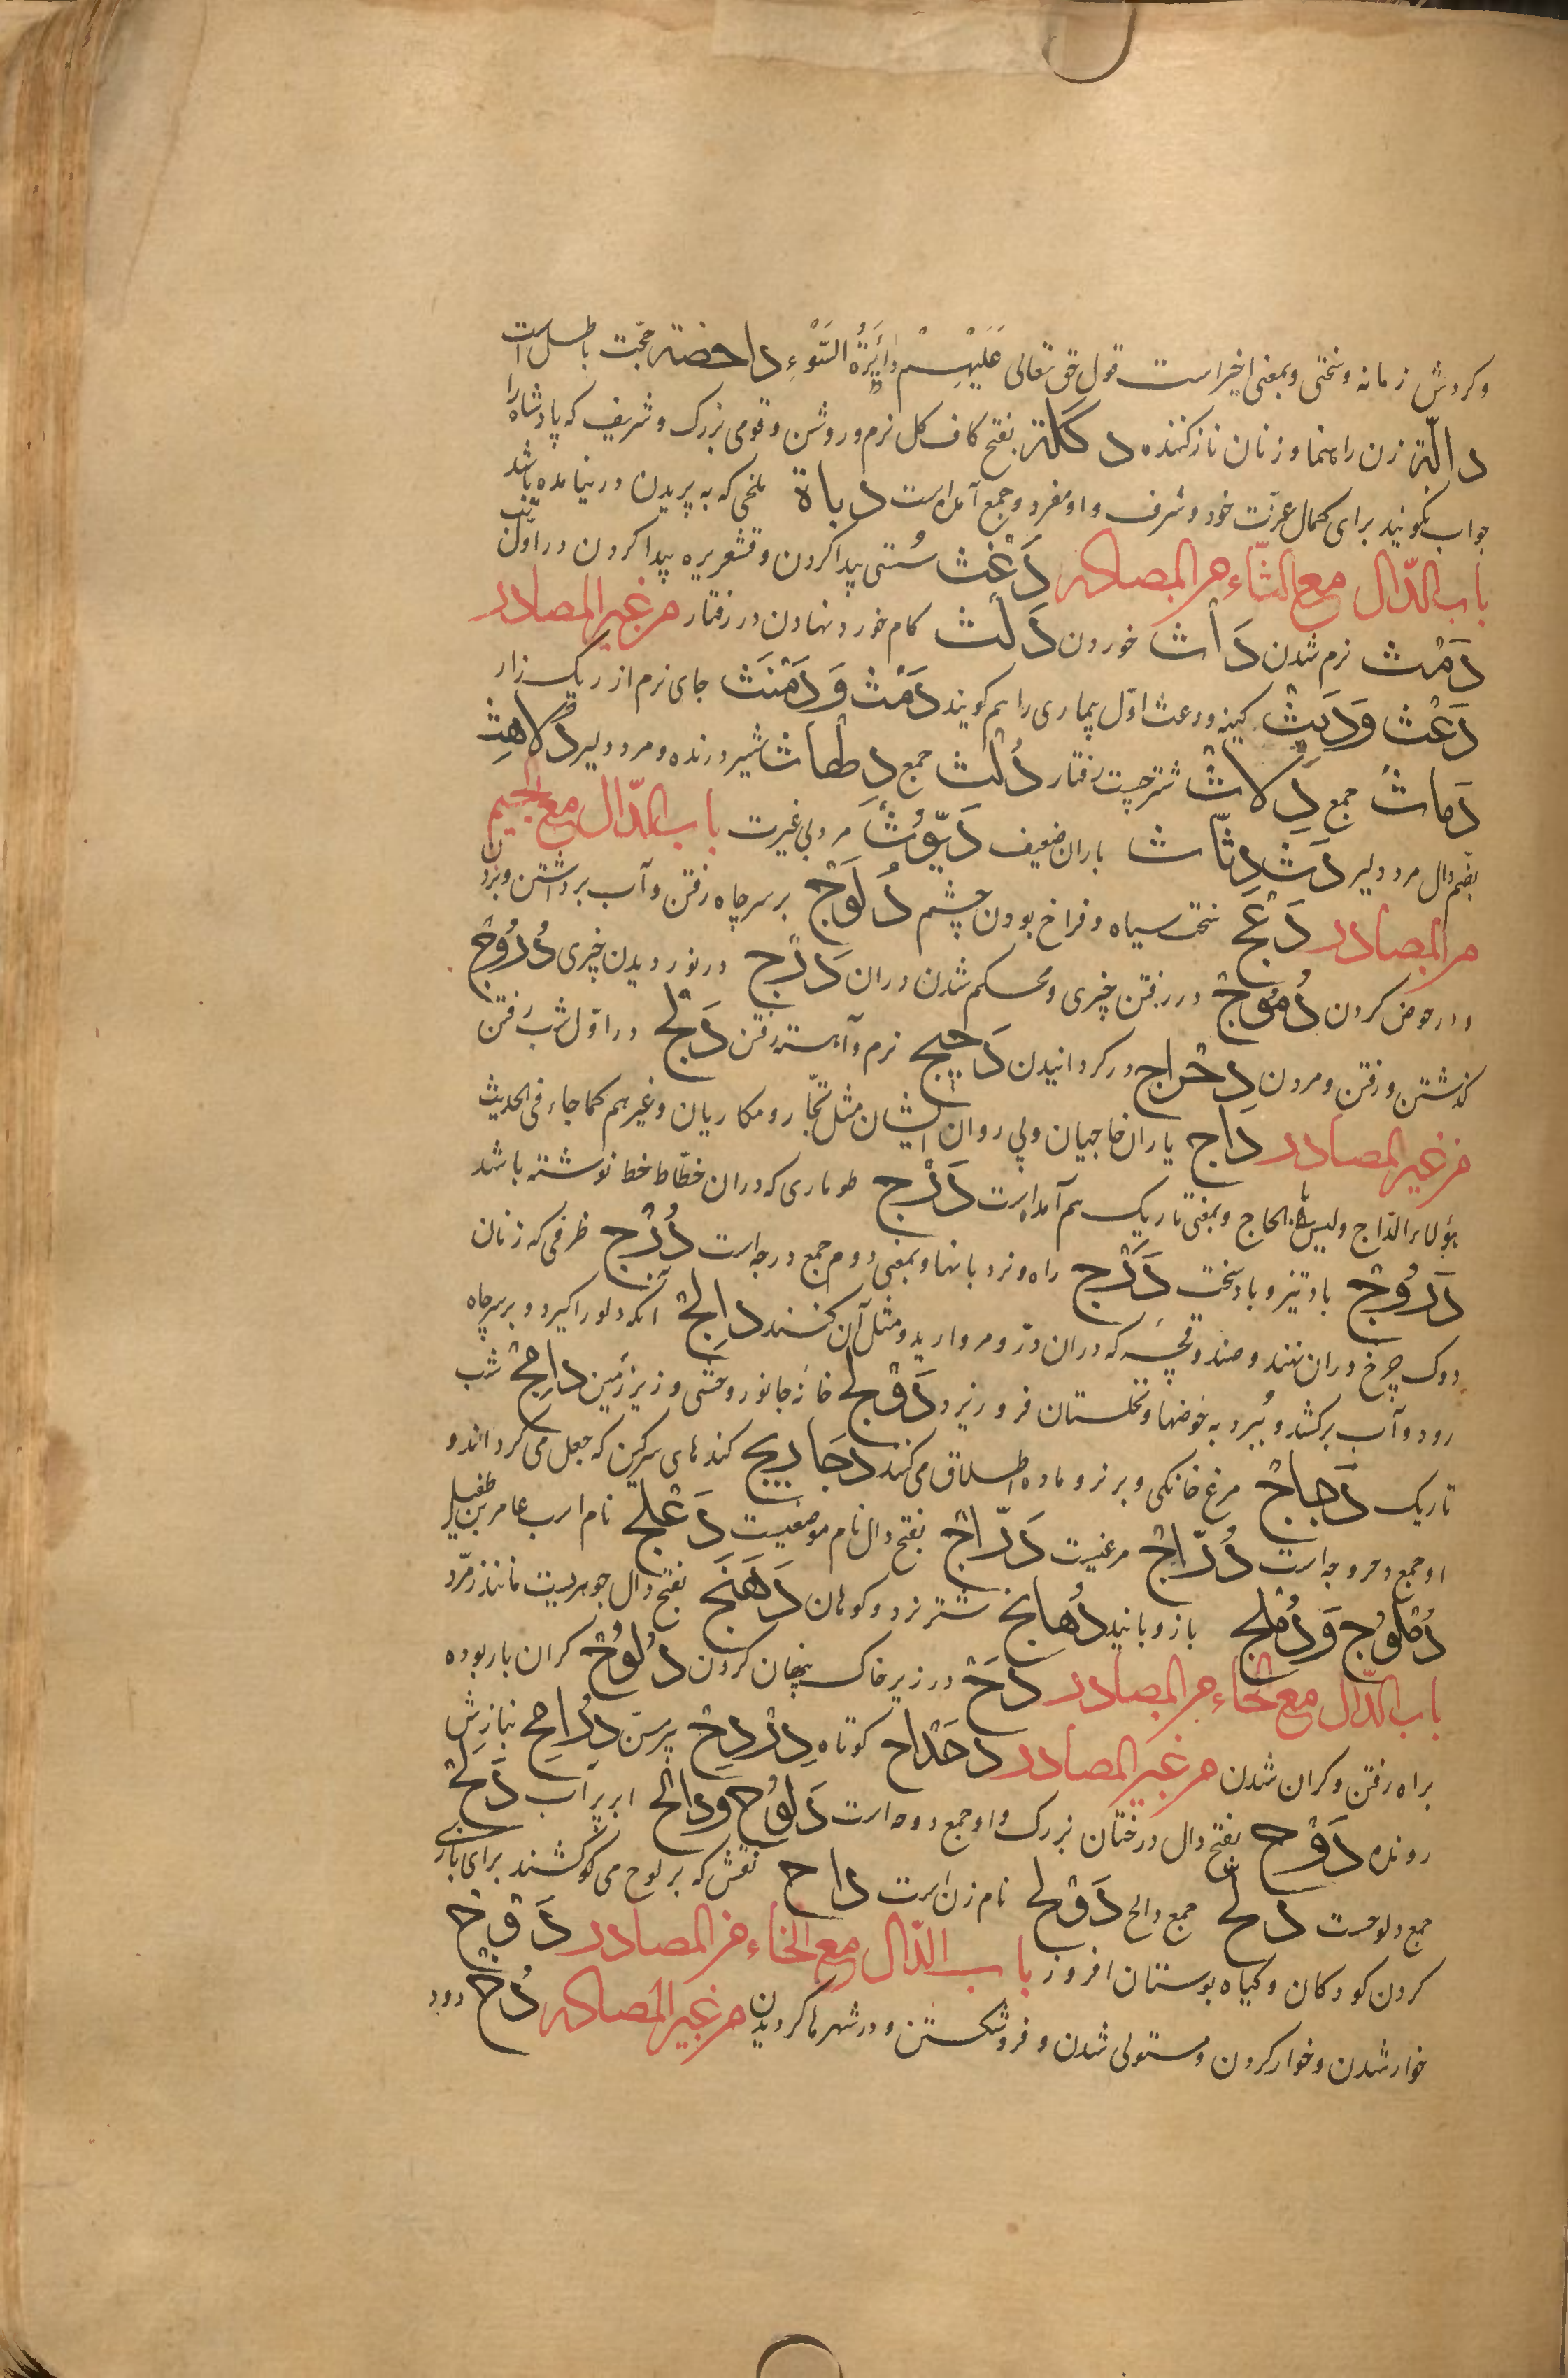 وکردش زمانه وسختی وبمعنی اخیراست قول حق تعالی عَلَیْهِمْ دَائِرَةُ السَّوْءِ داحضة حجّت باطل است
دالّة زن راهنما و زنان نازکننده دکلة بفتح کاف کل نرم و روشن و قومی بزرک و شریف که پادشاه را
جواب نکویند برای کمال عزّت خود و شرف و او مفرد و جمع آمده است دباة ملخی که به پریدن درنیامده باشد
باب الدّال مع الثاء من المصادر دَعْث سُستی پیدا کردن و قشعریره پیدا کردن در اوّل تب
دَمْث نرم شدن دَاْث خوردن دَلْث کام خورد نهادن در رفتار من غیر المصادر
دَعْث وَدَیْث کینه و دعث اوّل بیماری را هم کویند دَمْث وَ دَمْثَث جای نرم از ریک زار
دَماث جمع دِلاث شتر چست رفتار دُلْث جمع دِلهاث شیر درنده و مرد دلیر دُلاهِث
بضم دال مرد دلیر دَث دِثاث باران ضعیف دَیّوْث مرد بی غیرت باب الدّال مع الجیم
من المصادر دَعَج سخت سیاه و فراخ بودن چشم دُلُوْج بر سر چاه رفتن و آب برداشتن و بردن
و در حوض کردن دُمُوْج در رفتن چیزی و محکم شدن دران دَرْج در نوردیدن چیزی دُرُوْج
کذشتن و رفتن و مردن دِحْراج در کردانیدن دَجیج نرم و آهسته رفتن دَلْج در اوّل شب رفتن
من غیر المصادر داج یاران حاجیان و پی روان ایشان مثل تجّار و مکاریان و غیرهم کما جاء فی الحدیث
هؤلاء الدّاج ولیسوا بالحاج و بمعنی تاریک هم آمده است دَرْج طوماری که دران خطّاط خط نوشته باشد
دَرُوْج باد تیز و باد سخت دَرَج راه و نردبانها و بمعنی دوم جمع درجه است دُرْج ظرفی که زنان
دوک چرخ دران نهند و صندوقچه که دران درّ و مروارید و مثل آن کنند دالِج آنکه دلو را کیرد و بر سر چاه
رود و آب برکشد و بُبرد به حوضها و نخلستان فرو ریزد دَوْلَج خانۀ جانور وحشی و زیر زمین دامِج شب
تاریک دَجاج مرغ خانکی و بر نر و ماده اطلاق می کنند دَحاریج کندهای سرکین که جعل می کرداند و
او جمع دحروجه است دُرّاج مرغیست دَرّاج بفتح دال نام موضعیست دَعْلَج نام اسب عامر بن طفیل
دُمْلُوْج وَ دُمْلَج بازوبانید دُهانج شتر نر دو کوهان دَهْنَج بفتح دال جوهریست مانند زمرّد
باب الدّال مع الحاء من المصادر دَحّ در زیر خاک پنهان کردن دُلُوْح کران بار بوده
براه رفتن و کران شدن من غیر المصادر دحداح کوتاه دِرْدِح پیر مسن دُرامِح بنازش
رونده دَوْح بفتح دال درختان بزرک و او جمع دوحه است دَلُوْح ودالح ابر پر آب دُلُح
جمع دلوحست دُلّح جمع دالح دَوْلَح نام زن است داح نقش که بر لوح می کشند برای بازی
کردن کودکان و کیاه بوستان افروز باب الدّال مع الخاء من المصادر دَوْخ
خوار شدن و خوار کردن و مستولی شدن و فرو شکستن و در شهرها کردیدن من غیر المصادر دُخ دود